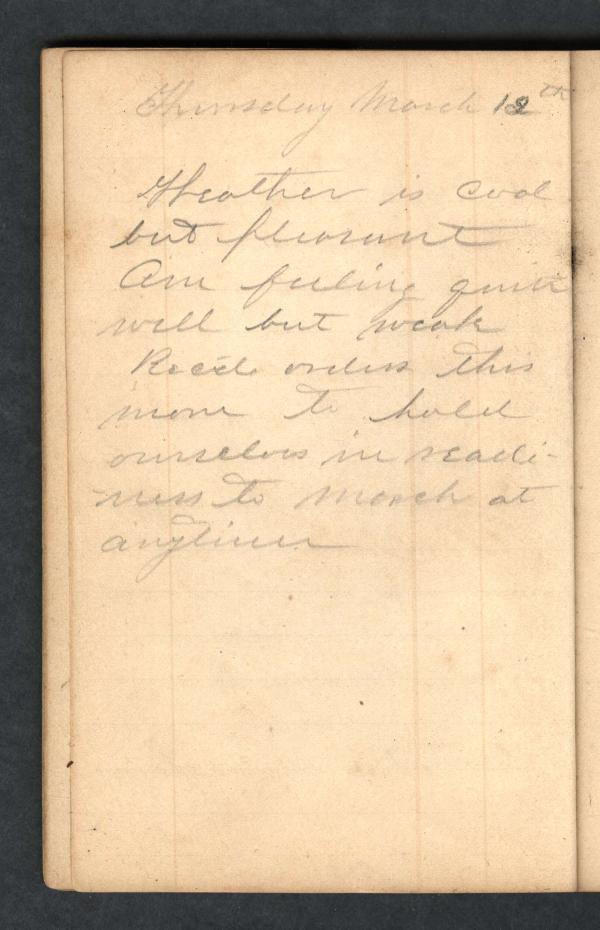 Thursday March 12th
Weather is cool
but pleasant
Am feeling quite
well but weak
Rec'd orders this
morn to hold
ourselves in readi-
ness to march at
anytime